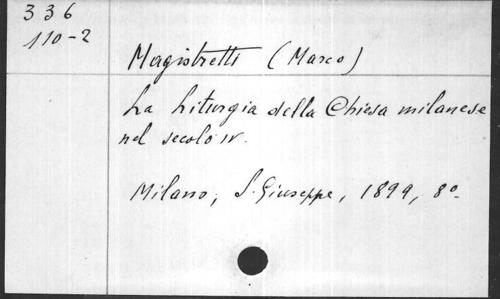 336
110-2
Magistretti (Marco)
La Liturgia della Chiesa milanese
nel secolo IV.
Milano, S. Giuseppe, 1899, 8º.